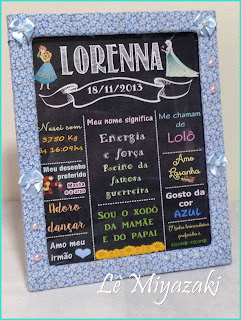 LORENNA
18/11/2013
Nasci com
3750 Kg
às 16:09hs
Meu desenho
preferido
Masha
e o urso
Adoro
dançar
Amo meu
irmão
Meu nome significa
Energia
e força
Racino da
famosa
guerreira
SOU O XODÓ
DA MAMÃE
E DO PAPAI
Me chamam
de
Lolô
Amo
Lasanha
Gosto da
cor
AZUL
Minha brincadeira
preferida é
esconde-esconde
Le Miyazaki